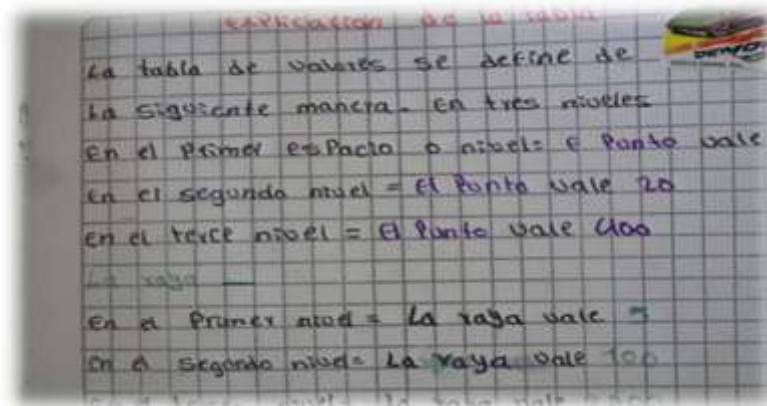 explicacion de la tabla
La tabla de valores se define de
la siguiente manera. En tres niveles
En el primer espacio o nivel= e Punto vale
En el segundo nivel = El Punto vale 20
En el terce nivel = El Punto vale 400
La raya —
En el Primer nivel = La raya vale 5
En el segundo nivel= La raya vale 100